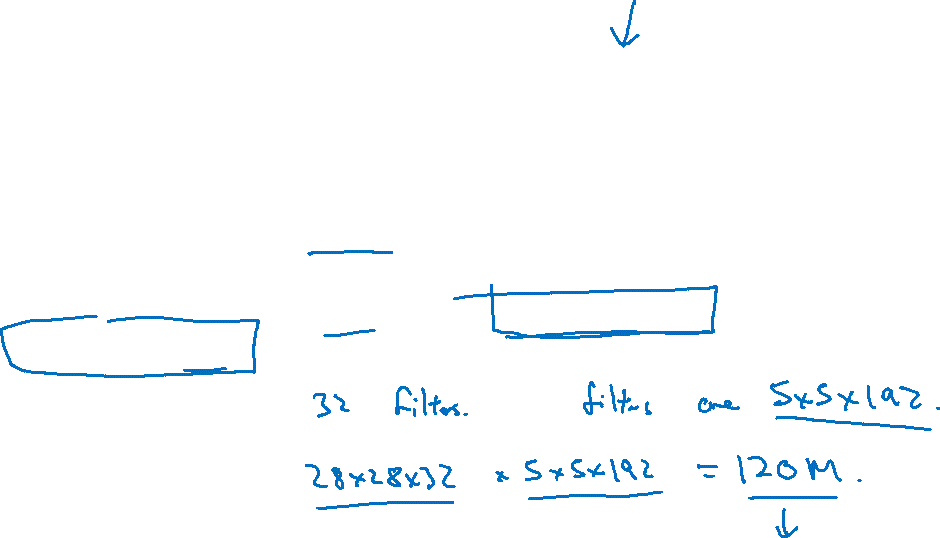 32 filters. filters are 5x5x192.
28x28x32 x 5x5x192 = 120M.